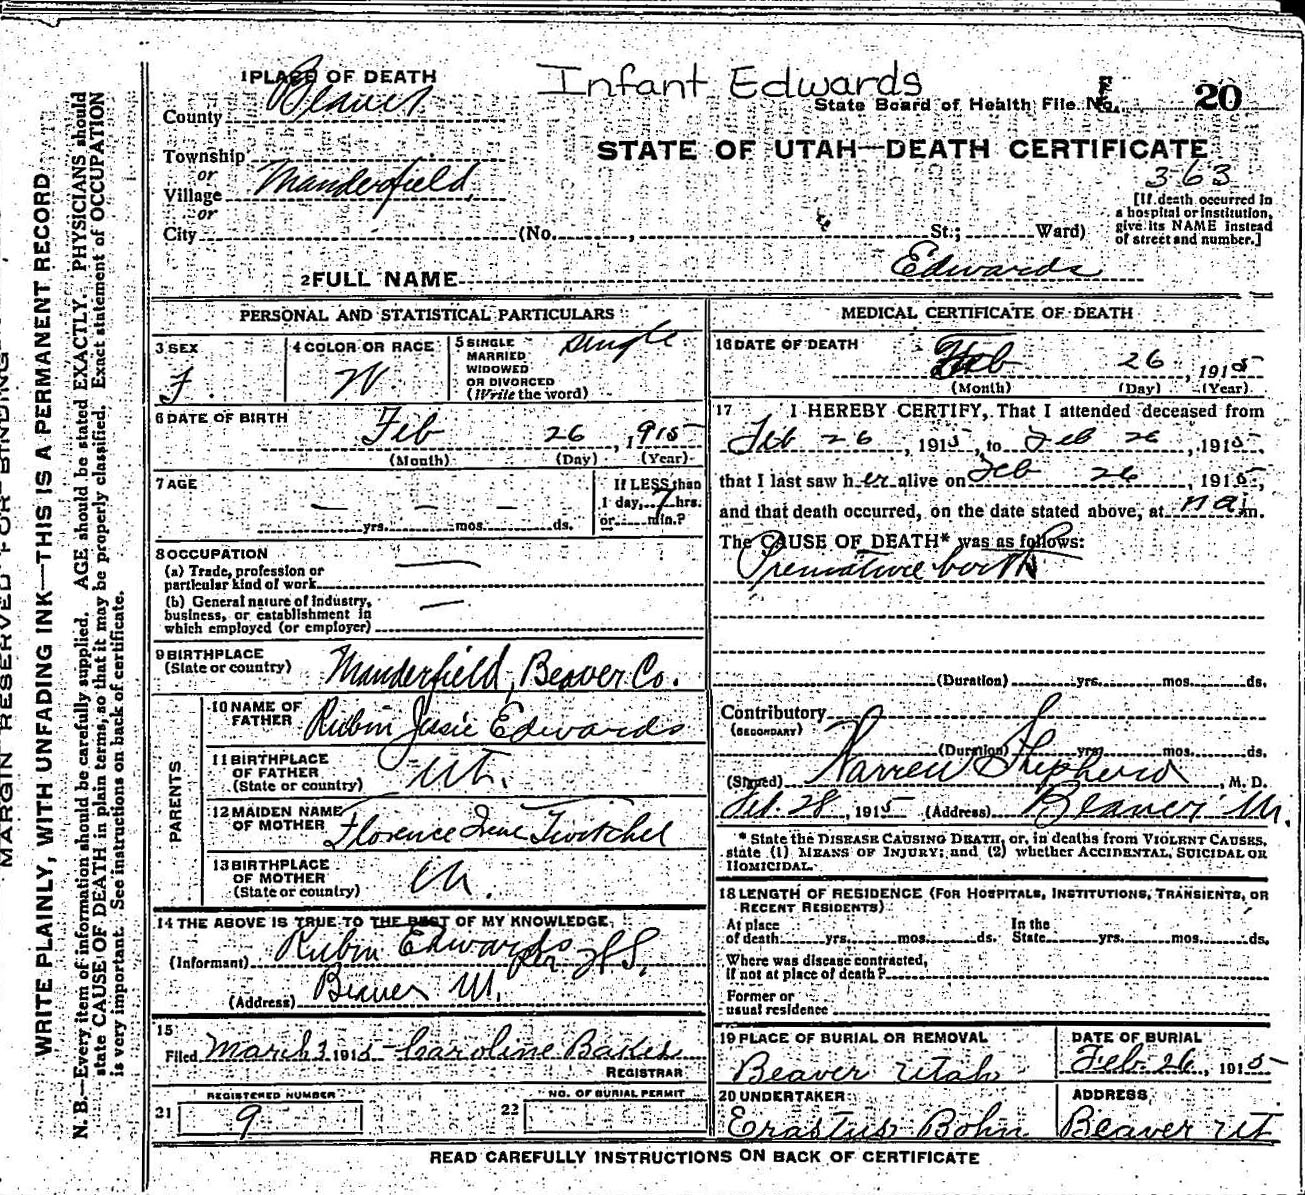 Infant Edwards
1 PLACE OF DEATH
County Beaver
State Board of Health File No. 20
STATE OF UTAH—DEATH CERTIFICATE
363
Township
or
Village Manderfield
or
City (No. , St.; Ward)
[If death occurred in
a hospital or institution,
give its NAME instead
of street and number.]
2 FULL NAME Edwards
PERSONAL AND STATISTICAL PARTICULARS
3 SEX
F.
4 COLOR OR RACE
W.
5 SINGLE
MARRIED
WIDOWED
OR DIVORCED
(Write the word)
Single
6 DATE OF BIRTH
Feb 26, 1915
(Month) (Day) (Year)
7 AGE
— yrs. — mos. — ds.
If LESS than
1 day, 7 hrs.
or min.?
8 OCCUPATION
(a) Trade, profession or
particular kind of work —
(b) General nature of industry,
business, or establishment in
which employed (or employer) —
9 BIRTHPLACE
(State or country) Manderfield, Beaver Co.
PARENTS
10 NAME OF
FATHER Rubin Jesie Edwards
11 BIRTHPLACE
OF FATHER
(State or country) Ut.
12 MAIDEN NAME
OF MOTHER Florence Irene Twitchel
13 BIRTHPLACE
OF MOTHER
(State or country) Ut.
14 THE ABOVE IS TRUE TO THE BEST OF MY KNOWLEDGE,
(Informant) Rubin Edwards
(Address) Beaver Ut.
15
Filed March 3 1915 Caroline Baker
REGISTRAR
21 REGISTERED NUMBER
9
22 NO. OF BURIAL PERMIT
MEDICAL CERTIFICATE OF DEATH
16 DATE OF DEATH
Feb 26, 1915
(Month) (Day) (Year)
17 I HEREBY CERTIFY, That I attended deceased from
Feb 26, 1915, to Feb 26, 1915,
that I last saw her alive on Feb 26, 1915,
and that death occurred, on the date stated above, at m.
The CAUSE OF DEATH* was as follows:
Premature birth
(Duration) yrs. mos. ds.
Contributory
(SECONDARY)
(Duration) yrs. mos. ds.
(Signed) Warren Shepherd, M. D.
Feb. 28, 1915 (Address) Beaver Ut.
*State the DISEASE CAUSING DEATH, or, in deaths from VIOLENT CAUSES,
state (1) MEANS OF INJURY; and (2) whether ACCIDENTAL, SUICIDAL OR
HOMICIDAL.
18 LENGTH OF RESIDENCE (FOR HOSPITALS, INSTITUTIONS, TRANSIENTS, OR
RECENT RESIDENTS)
At place
of death yrs. mos. ds.
In the
State yrs. mos. ds.
Where was disease contracted,
if not at place of death?
Former or
usual residence
19 PLACE OF BURIAL OR REMOVAL
Beaver Utah
DATE OF BURIAL
Feb. 26, 1915
20 UNDERTAKER
Erastus Bohn.
ADDRESS
Beaver Ut
READ CAREFULLY INSTRUCTIONS ON BACK OF CERTIFICATE
MARGIN RESERVED FOR BINDING
WRITE PLAINLY, WITH UNFADING INK—THIS IS A PERMANENT RECORD
N. B.—Every item of information should be carefully supplied. AGE should be stated EXACTLY. PHYSICIANS should
state CAUSE OF DEATH in plain terms, so that it may be properly classified. Exact statement of OCCUPATION
is very important. See instructions on back of certificate.